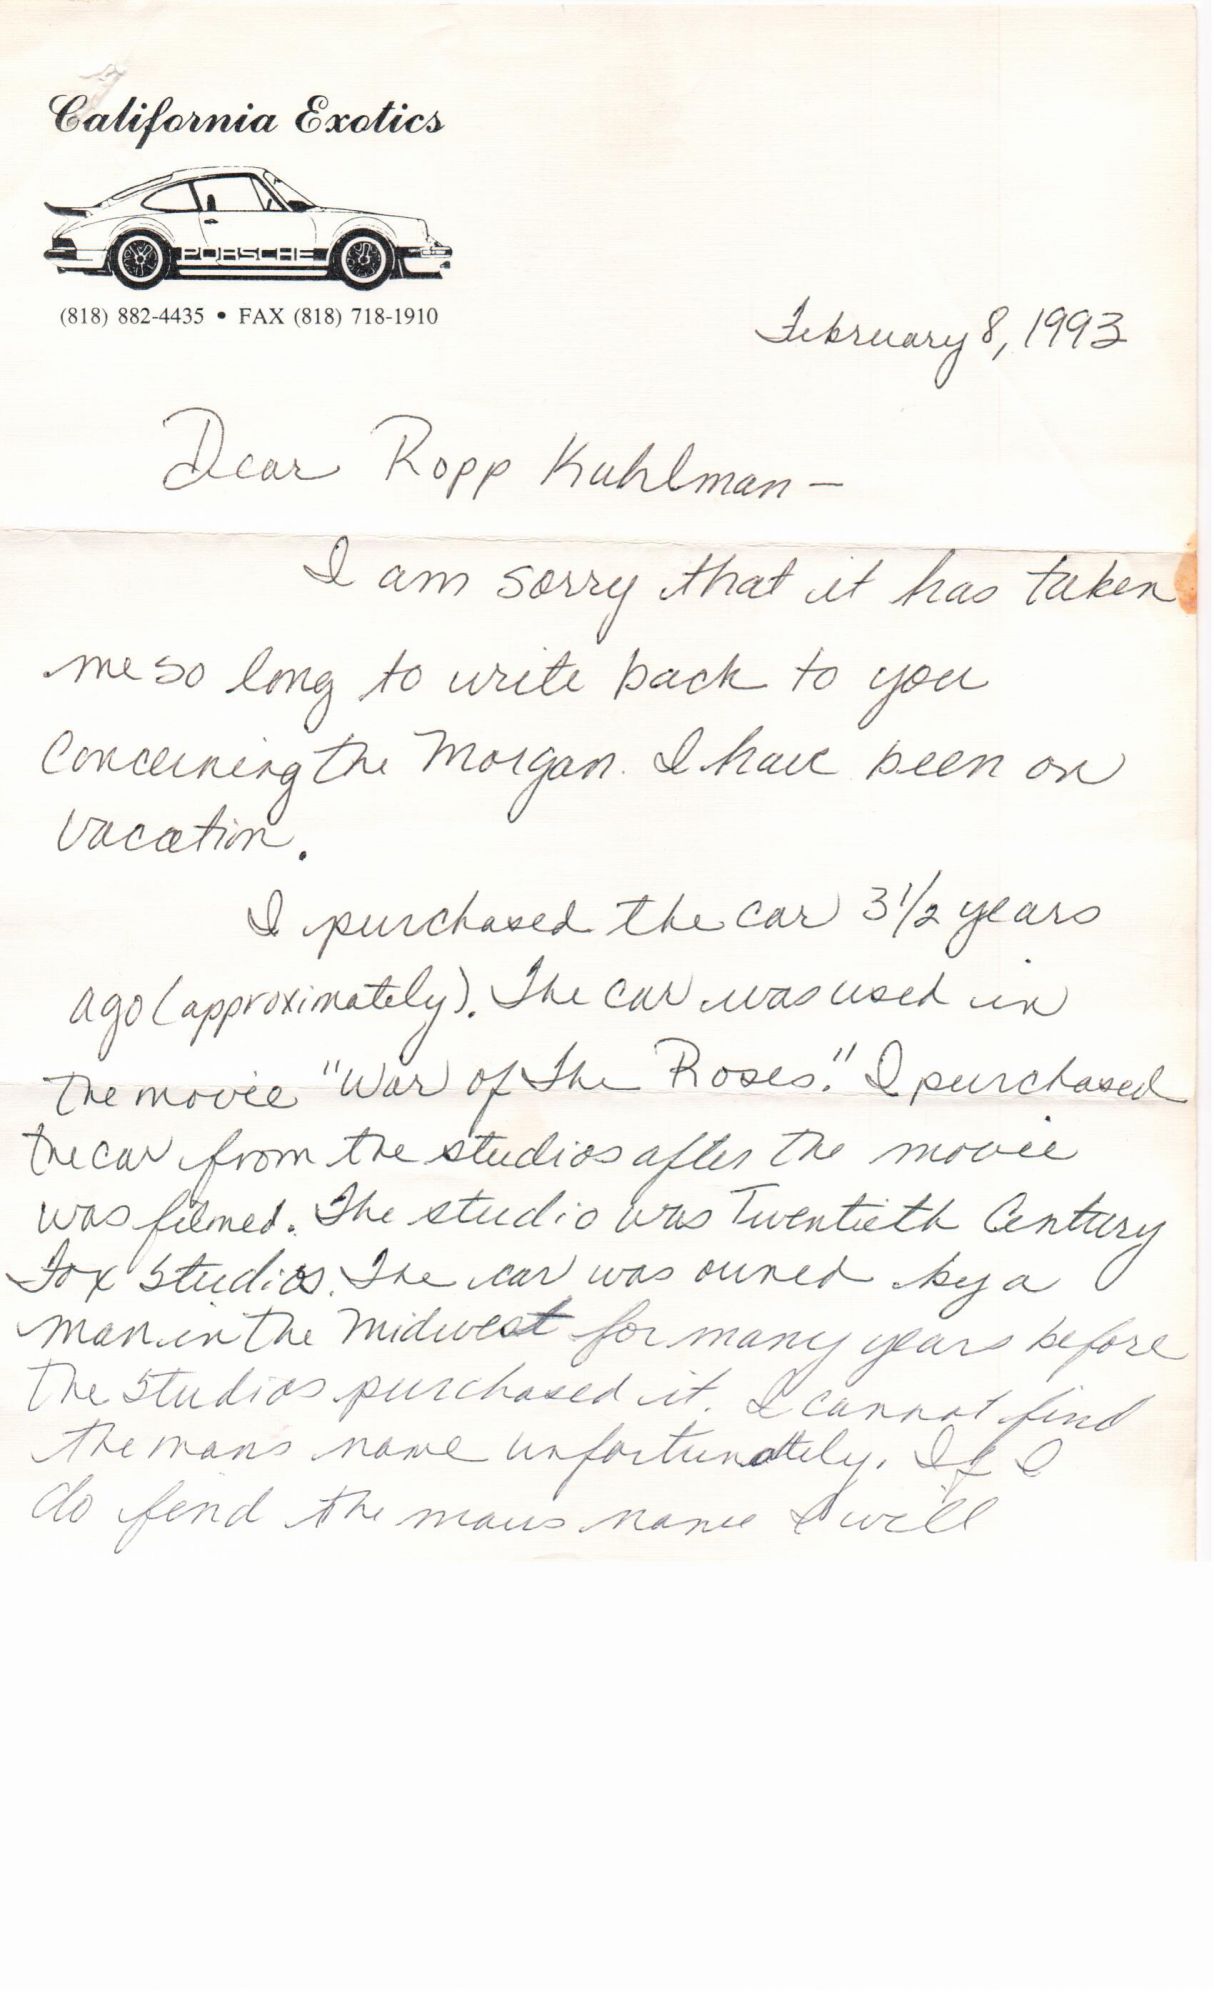 California Exotics
PORSCHE
(818) 882-4435 • FAX (818) 718-1910
February 8, 1993
Dear Ropp Kuhlman —
I am sorry that it has taken
me so long to write back to you
concerning the Morgan. I have been on
vacation.
I purchased the car 3 1/2 years
ago (approximately). The car was used in
the movie "War of The Roses." I purchased
the car from the studios after the movie
was filmed. The studio was Twentieth Century
Fox Studios. The car was owned by a
man in the Midwest for many years before
the studios purchased it. I cannot find
the mans name unfortunately. If I
do find the mans name I will